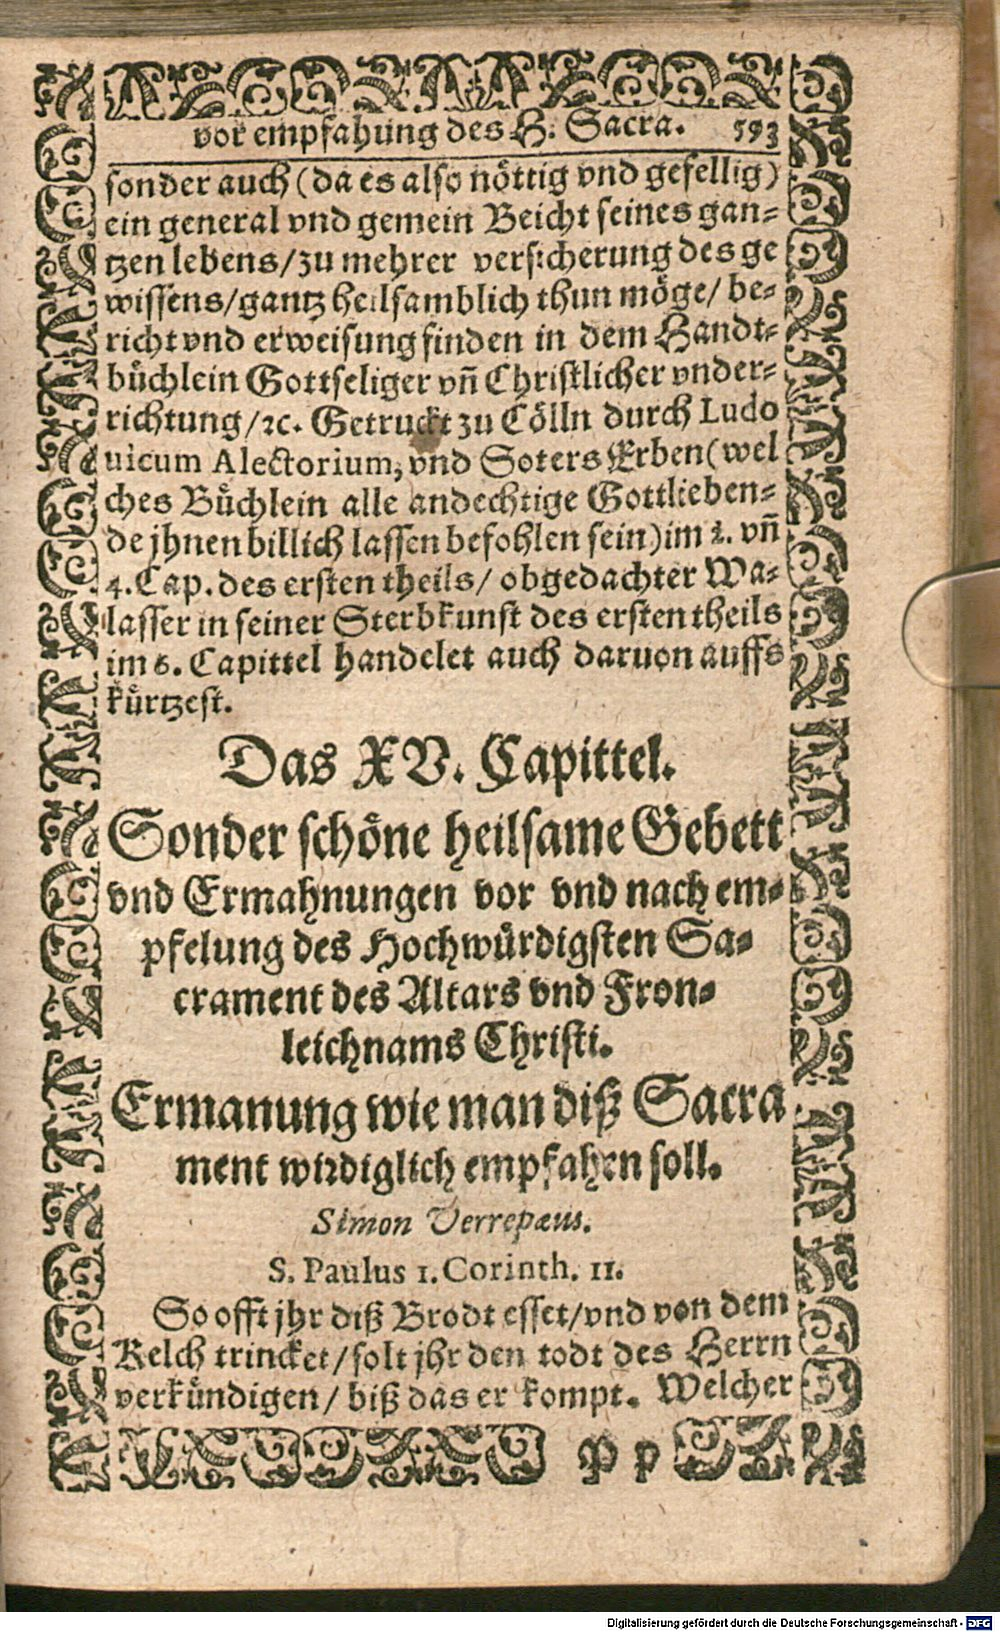 vor empfahung des H. Sacra. 593
sonder auch (da es also nöttig vnd gefellig)
ein general vnd gemein Beicht seines gan⸗
tzen lebens/zu mehrer versicherung des ge
wissens/gantz heilsamblich thun möge/ be⸗
richt vnd erweisung finden in dem Handt⸗
büchlein Gottseliger vñ Christlicher vnder⸗
richtung/ꝛc. Getruckt zu Cölln durch Ludo
uicum Alectorium, vnd Soters Erben (wel
ches Büchlein alle andechtige Gottlieben⸗
de jhnen billich lassen befohlen sein) im 2. vñ
4. Cap. des ersten theils/ obgedachter Wa⸗
lasser in seiner Sterbkunst des ersten theils
im 6. Capittel handelet auch daruon auffs
kürtzest.
Das XV. Capittel.
Sonder schöne heilsame Gebett
vnd Ermahnungen vor vnd nach em⸗
pfelung des Hochwürdigsten Sa⸗
crament des Altars vnd Fron⸗
leichnams Christi.
Ermanung wie man diß Sacra
ment wirdiglich empfahen soll.
Simon Verrepæus.
S. Paulus 1. Corinth. 11.
So offt jhr diß Brodt esset/vnd von dem
Kelch trincket/solt jhr den todt des Herrn
verkündigen/ biß das er kompt. Welcher
P p
Digitalisierung gefördert durch die Deutsche Forschungsgemeinschaft - DFG